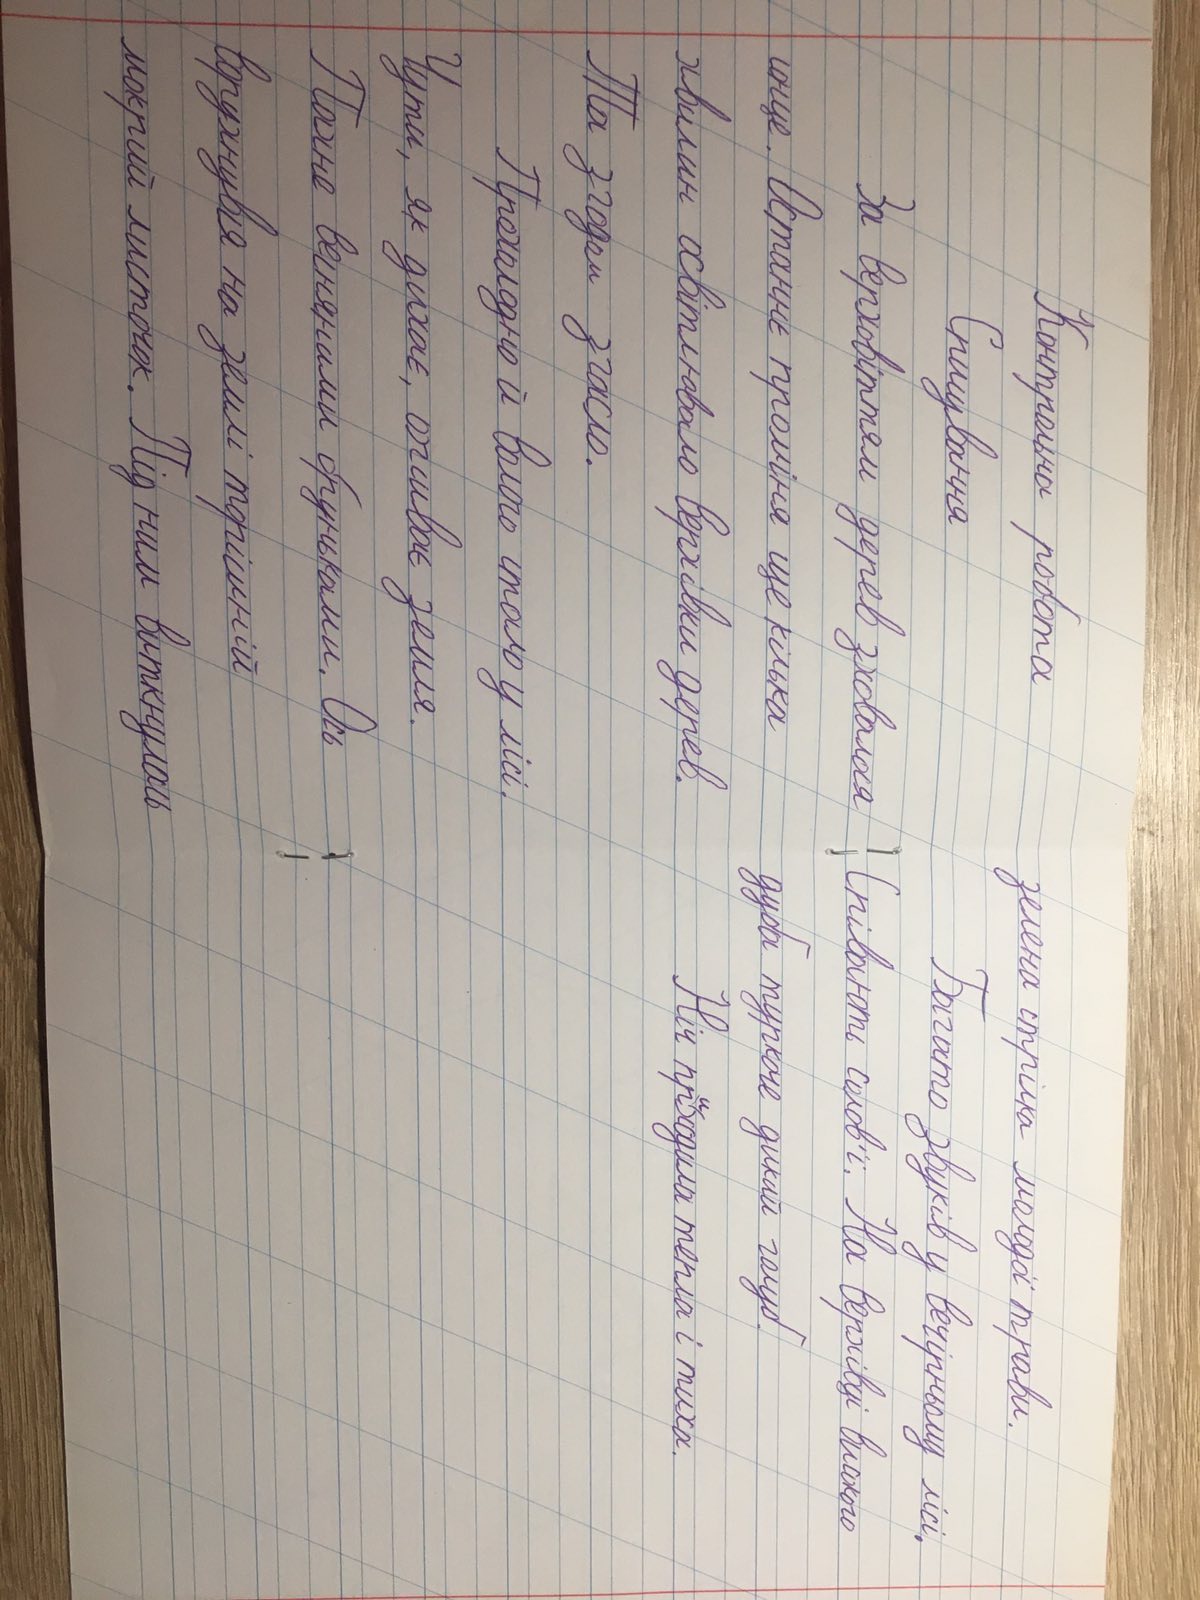 Контрольна робота
Списування
За верховіттям дерев зховалося
сонце. Останнє проміня ще кілька
хвилин освітлювало верхівки дерев.
Та згодом згасло.
Прохолодно й волого стало у лісі.
Чути, як дихає, оживає земля.
Пахне весняними бруньками. Ось
ворухнувся на землі торішній
мокрий листочок. Під ним виткнулась
зелена стрілка молодої трави.
Багато звуків у вечірньому лісі.
Співають солов'ї. На верхівці високого
дуба туркоче дикий голуб.
Ніч приходила тепла і тиха.